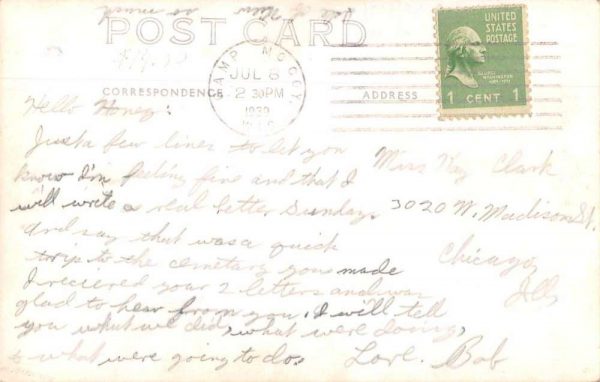 POST CARD
CAMP MC COY,
JUL 6
2 30 PM
1939
WIS
UNITED
STATES
POSTAGE
1 CENT 1
CORRESPONDENCE
ADDRESS
Hello Honey:
Just a few lines to let you
know I'm feeling fine and that I
will write a real letter Sunday.
And say that was a quick
trip to the cemetary you made
I recieved your 2 letters and was
glad to hear from you. I will tell
you what we did, what were doing,
& what were going to do.
Love. Bob
Miss Kay Clark
3020 W. Madison St.
Chicago,
Ill.